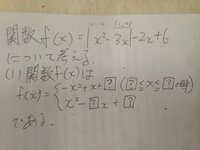 関数 f(x) = |x²-3x|-2x+6
について考える。
(1) 関数f(x)は
f(x)={-x²+x+□ (□≦x≦□の時)
x²-□x+□
である。